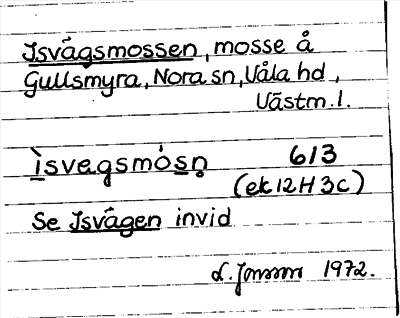 Isvägsmossen, mosse å
Gullsmyra, Nora sn, Våla hd,
Västm. l.
ìsvegsmósn̥ 613
(ek 12H 3c)
Se Isvägen invid
L. Jonsson 1972.